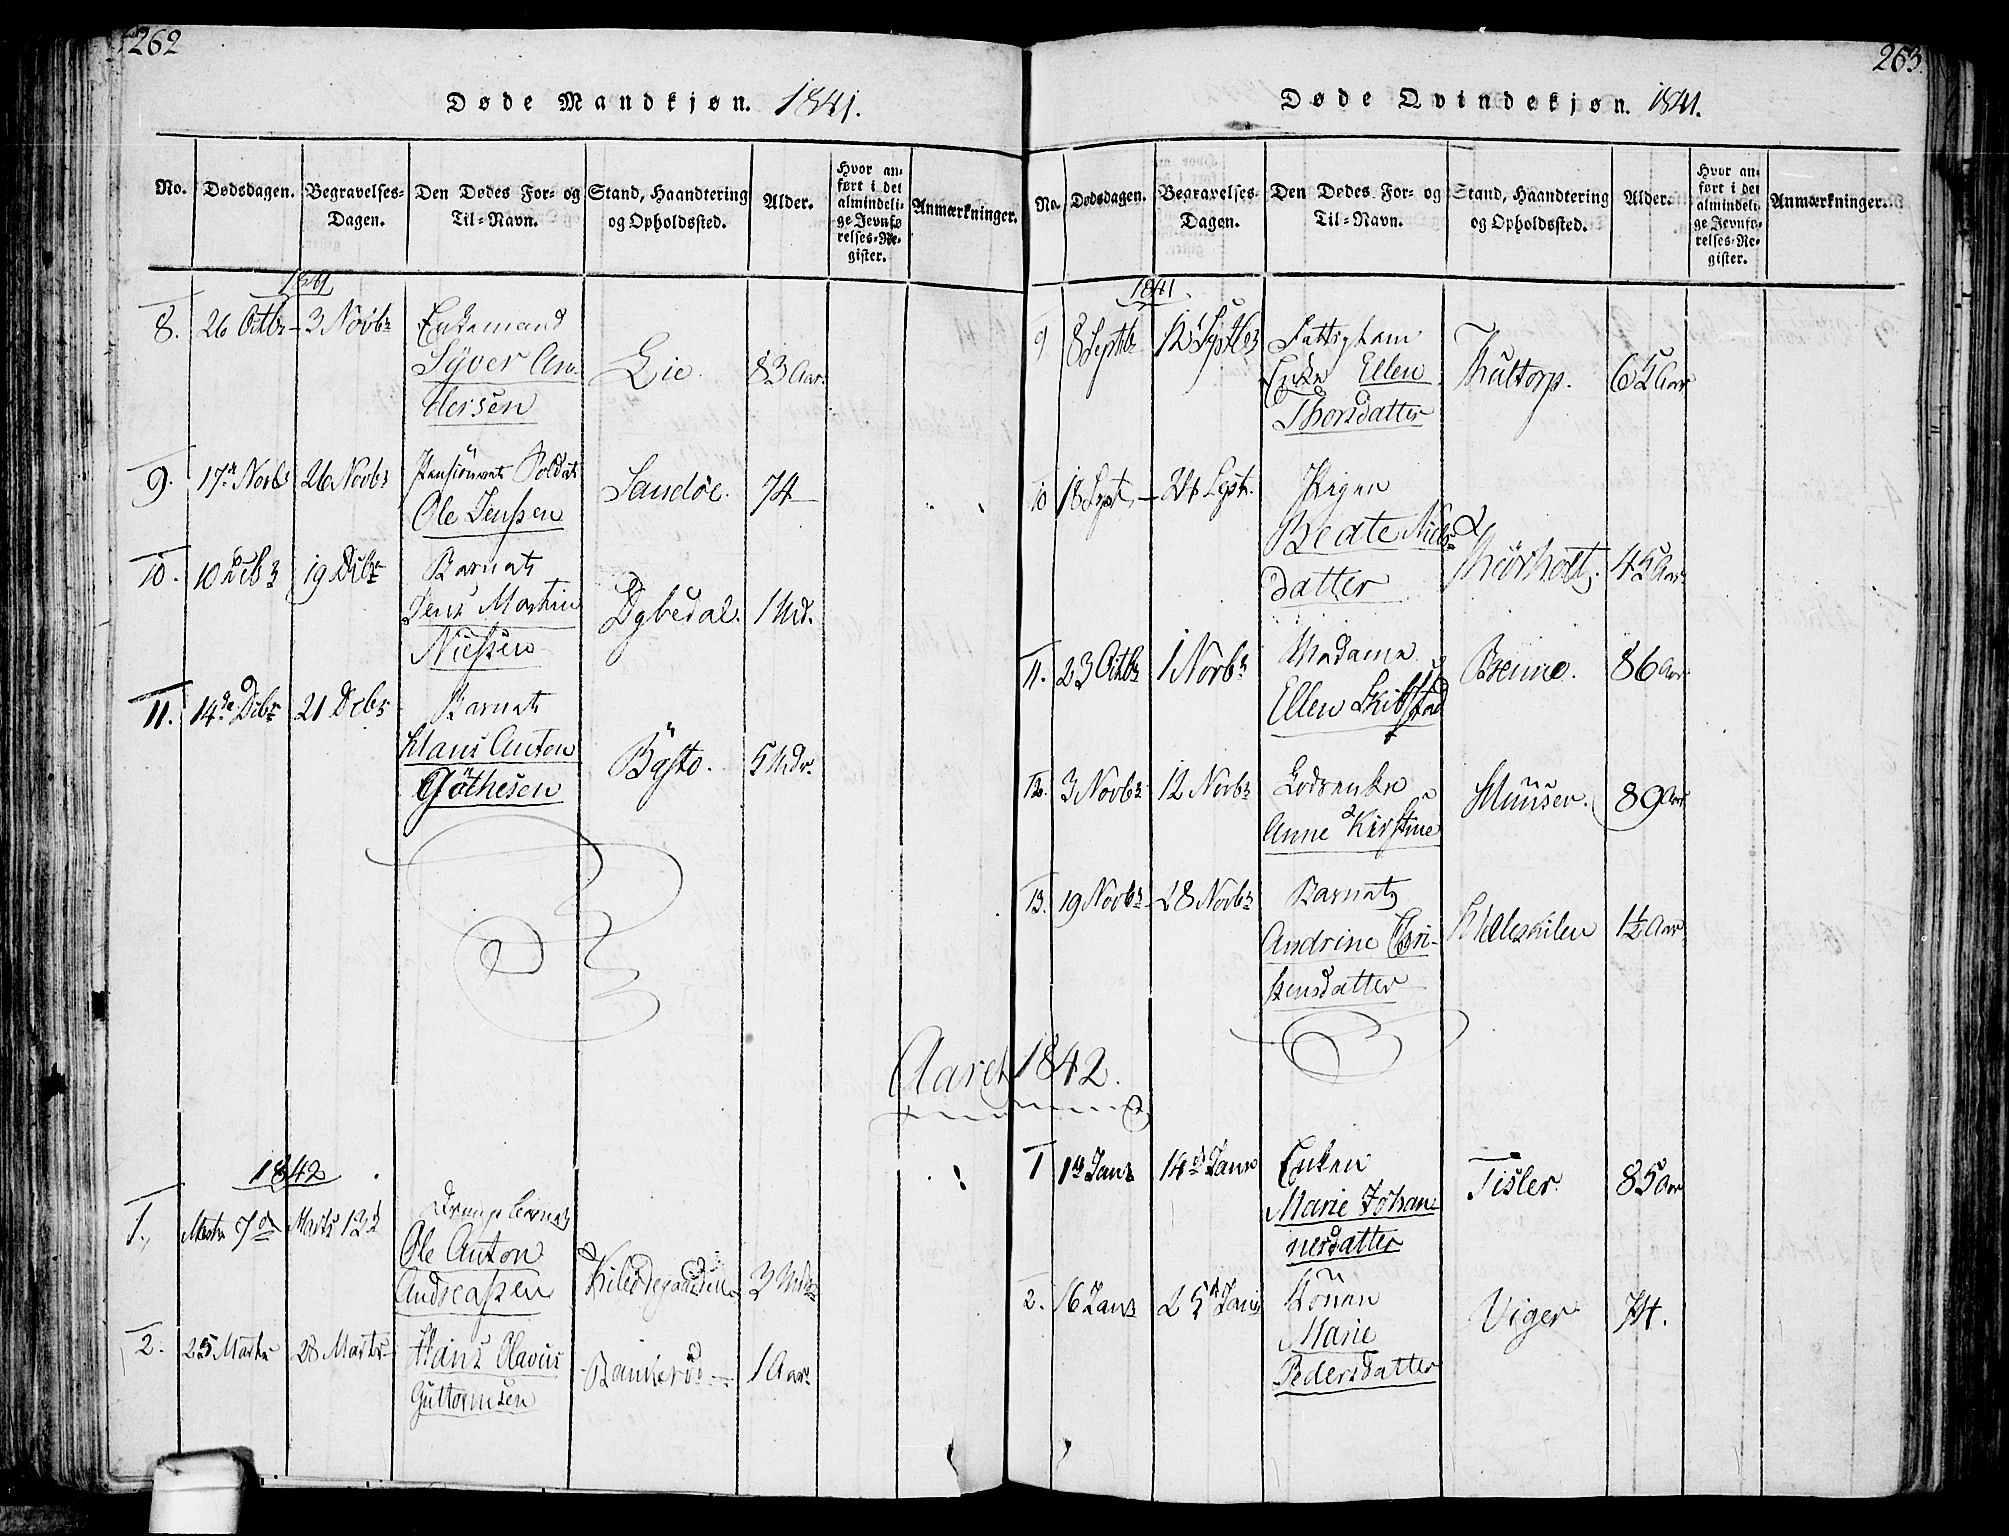 262
Døde Mandkjøn. 1841.
No. Dødsdagen. Begravelses-Dagen. Den Dødes For- og Til-Navn. Stand, Haandtering og Opholdssted. Alder. Hvor anført i det almindelige Jevnførelses-Register. Anmærkninger.
1841
8. 26 Octbr 3 Novbr Enkemand
Syver An-
dersen Lie. 83 Aar.
9. 17de Novbr 26 Novbr Soldat
Ole Jenssen Sandøe. 74
10. 10 Debr 19 Debr Barnet
Jens Martin
Nielssen Dybedal. 1 Md.
11. 14de Debr 21 Debr Barnet
Klaus Anton
Göthesen Bysto. 5 Mdr.
1842
1. Marts 7de Marts 13d Drengebarnet
Ole Anton
Andreassen 3 Mdr
2. 25 Marts 28 Marts Hans Olavus
Guttormsen 1 Aar
263
Døde Qvindekjøn. 1841.
No. Dødsdagen. Begravelses-Dagen. Den Dødes For- og Til-Navn. Stand, Haandtering og Opholdssted. Alder. Hvor anført i det almindelige Jevnførelses-Register. Anmærkninger.
1841
9 8 Septb 12 Septbr Fattiglem
Enke Ellen
Thorsdatter 65 Aar
10 18 Sept. Sept. Pigen
Beate Niels
datter Thorholt. 45 Aar
11. 23 Octbr 1 Novbr Madame
Ellen Skibstad Benne. 86 Aar
12. 3 Novbr 12 Novbr Lodsenke
Anne Kirstine 89 Aar
13. 19 Novbr 28 Novbr Barnet
Andrine Chri-
stensdatter 1½ Aar
Aaret 1842.
1 Janr 14d Janr Enken
Marie Johan-
nesdatter Tisler. 85 Aar
2. 16 Janr 25d Janr Konen
Marie
Pedersdatter Viger 74.